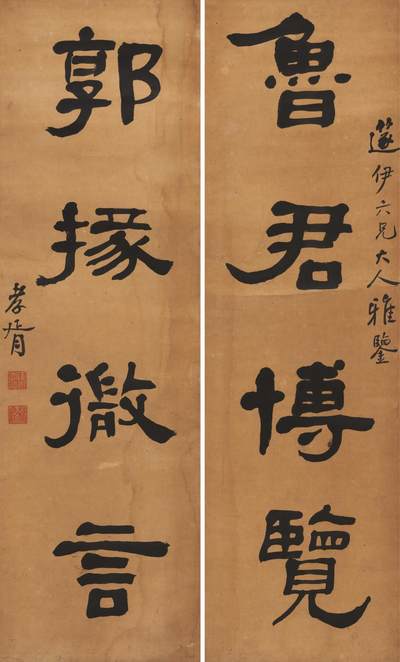 伊六兄大人雅鑒
魯君博覽
郭掾微言
孝胥